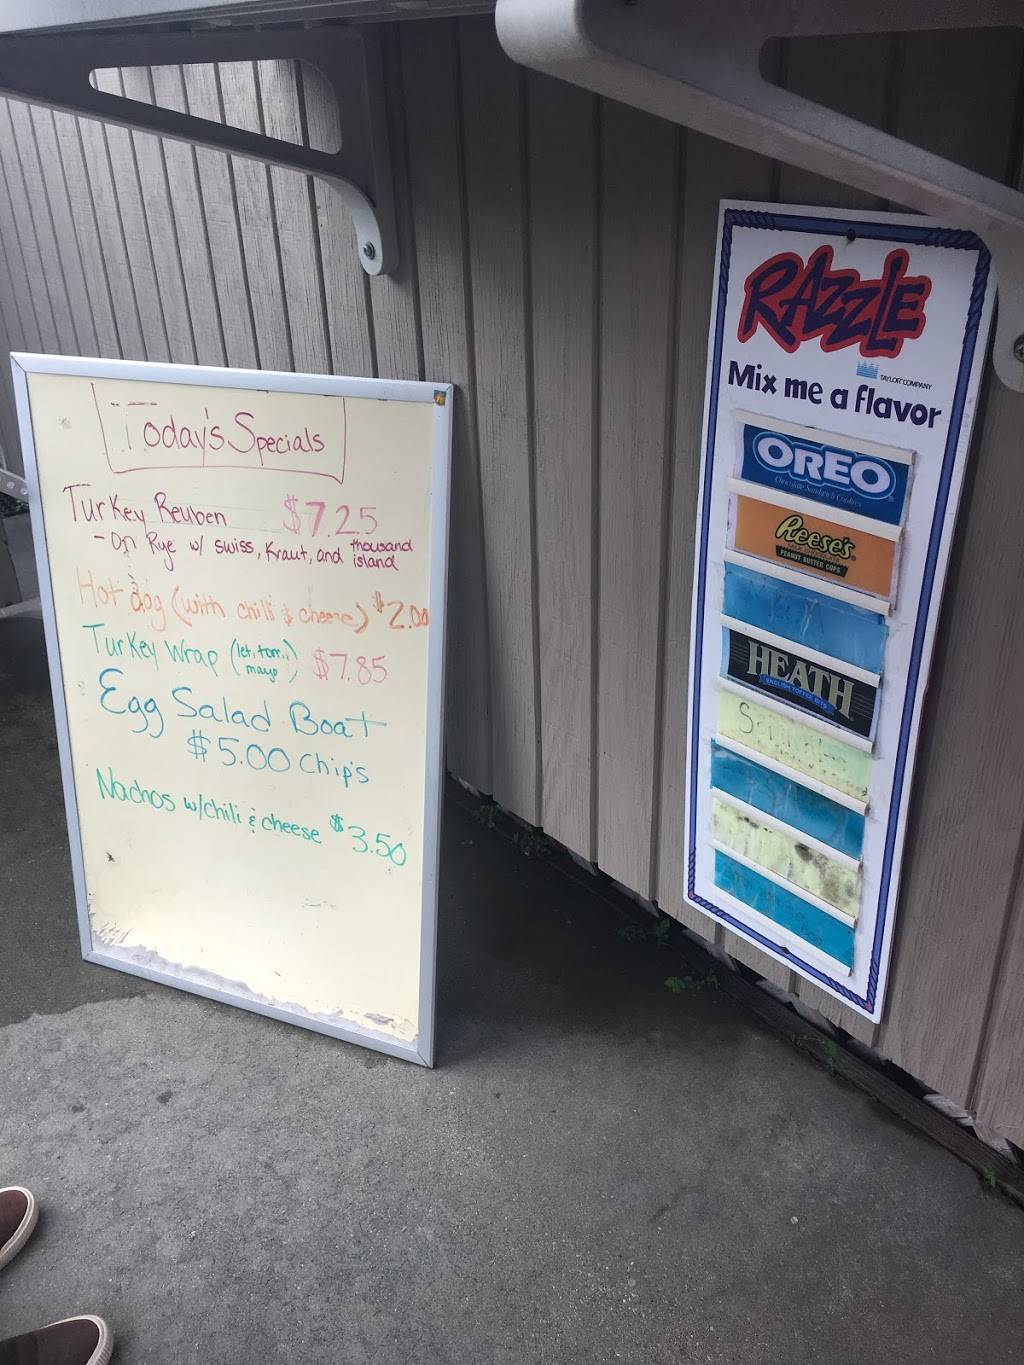 Today's Specials
Turkey Reuben $7.25
- on Rye w/ swiss, Kraut, and thousand island
Hot dog (with chili & cheese) $2.00
Turkey Wrap (let, tom, mayo) $7.85
Egg Salad Boat
$5.00 Chips
Nachos w/chili & cheese $3.50
RAZZLE
TAYLOR COMPANY
Mix me a flavor
OREO
Chocolate Sandwich Cookies
Reese's
PEANUT BUTTER CUPS
HEATH
ENGLISH TOFFEE BITS